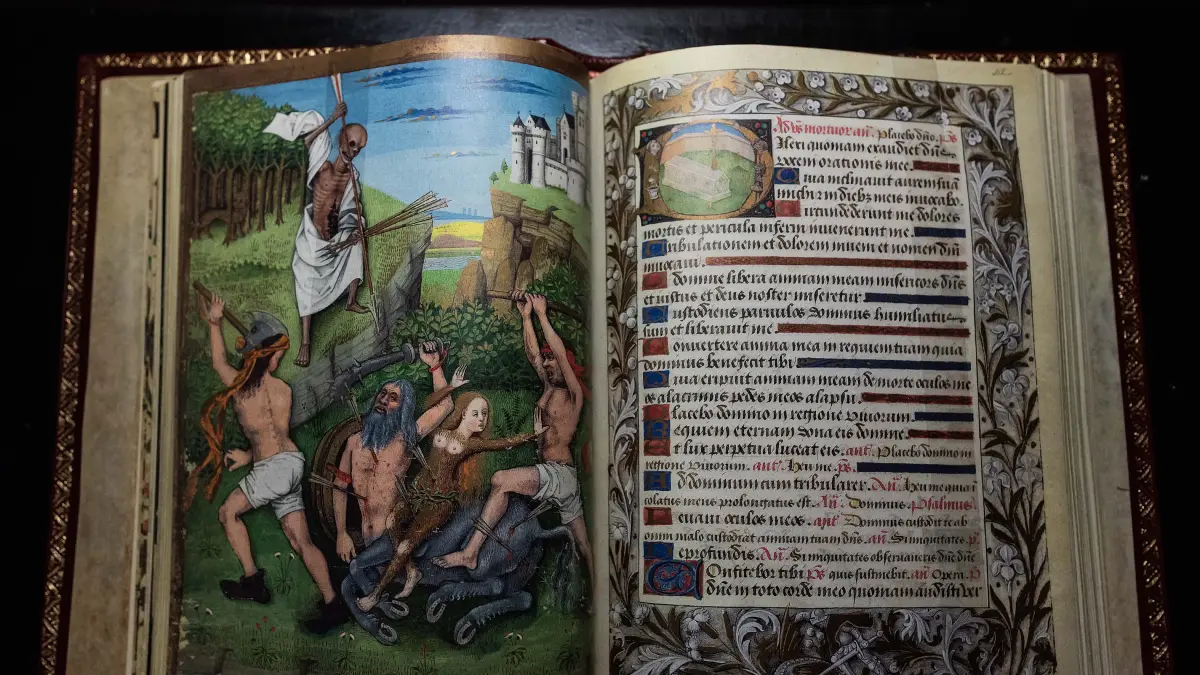 Ad vs mortuor. an̄. Placebo dño. ps
Dilexi quoniam exaudiet dñs
vocem orationis mee.
Quia inclinauit aurem suā
michi et in dieb; meis inuocabo.
Circundederunt me dolores
mortis et pericula inferni inuenerunt me.
Tribulationem et dolorem inueni et nomen dñi
inuocaui.
O domine libera animam meam misericors dñs
et iustus et deus noster miseretur.
Custodiens paruulos dominus humiliatus
sum et liberauit me.
Conuertere anima mea in requiem tuam quia
dominus benefecit tibi
Quia eripuit animam meam de morte oculos me
os a lacrimis pedes meos a lapsu.
Placebo domino in regione viuorum.
Requiem eternam dona eis domine.
Et lux perpetua luceat eis. ant. Placebo domino in
regione viuorum. ant. Heu me. ps.
Ad dominum cum tribularer. An̄. Heu me quia in
colatus meus prolongatus est. An̄. Dominus. Psalmus.
Leuaui oculos meos. ant. Dominus custodit te ab
omni malo custodiat animam tuam dñs. an. Si iniquitates. p.
De profundis. An̄. Si iniquitates obseruaueris dñe dñe
quis sustinebit. an. Opera. P
Confitebor tibi
dñe in toto corde meo quoniam audisti ver